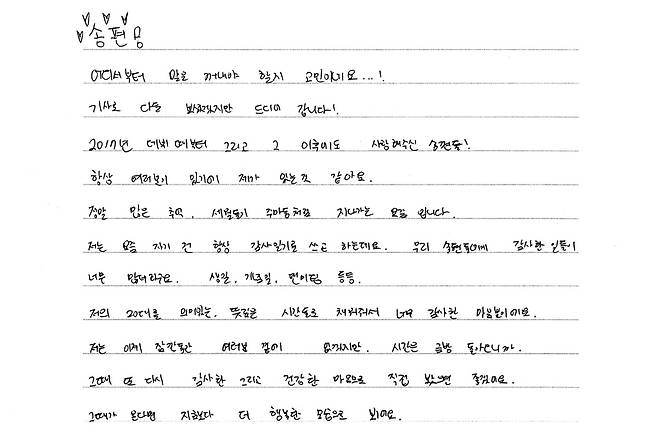 송편♡
어디서부터 말을 꺼내야 할지 고민이지요...!
기사로 다들 봤겠지만 드디어 갑니다!
2017년 데뷔 때부터 그리고 그 이후에도 사랑해주신 송편들!
항상 여러분이 있기에 제가 있는 것 같아요.
정말 많은 추억, 세월들이 주마등처럼 지나가는 요즘 입니다.
저는 요즘 자기 전 항상 감사일기를 쓰고 하는데요. 우리 송편들에게 감사한 일들이
너무 많더라구요. 생일, 개츠릴, 팬미팅 등등.
저의 20대를 의미있는, 뜻깊은 시간들로 채워줘서 너무 감사한 마음뿐이에요.
저는 이제 잠깐동안 여러분 곁에 없겠지만, 시간은 금방 돌아오니까.
그때 또 다시 감사한 그리고 건강한 마음으로 직접 봤으면 좋겠어요.
그때가 온다면 지금보다 더 행복한 모습으로 봐요.